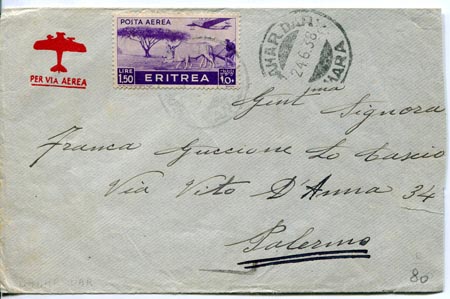 POSTA AEREA
LIRE 1,50
ERITREA
10
PER VIA AEREA
24.6.38
Gent.ma Signora
Franca Guccione Lo Cascio
Via Vito D'Anna 34
Palermo
80